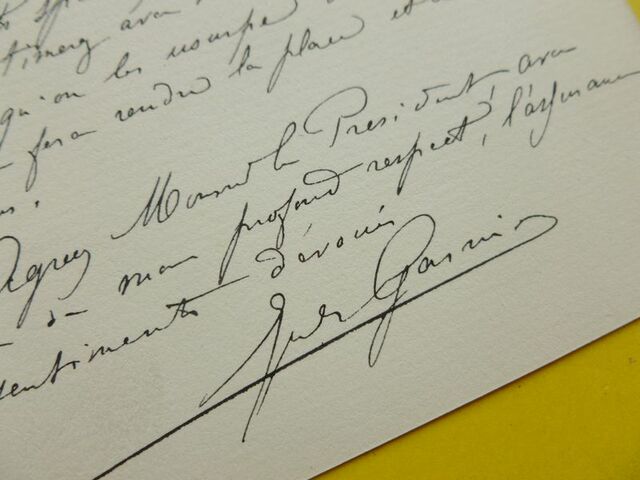 qu'on les usurpe
fera rendre la place et
Agréez Monsieur le Président, avec
mon profond respect, l'assurance
sentiments dévoués
Jules Garnier